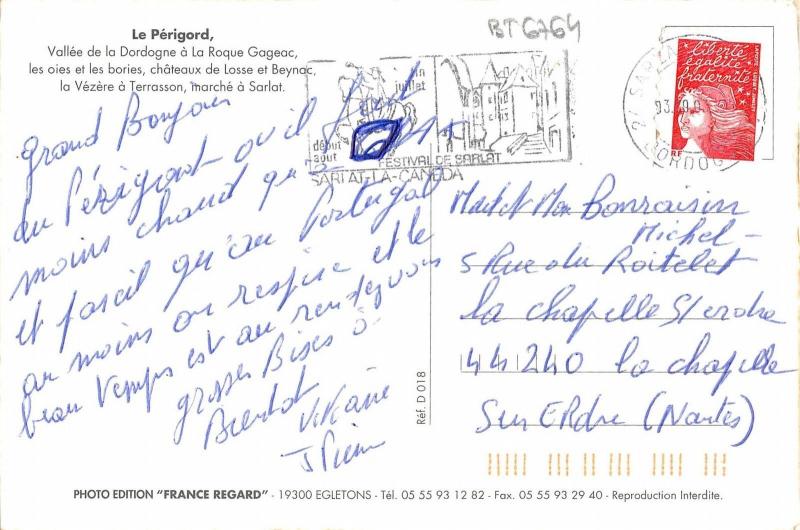 BT6764
Le Périgord,
Vallée de la Dordogne à La Roque Gageac,
les oies et les bories, châteaux de Losse et Beynac,
la Vézère à Terrasson, marché à Sarlat.
fin
juillet
début
août
FESTIVAL DE SARLAT
SARLAT-LA-CANEDA
liberté
égalité
fraternité
RF
DORDOGNE
Grand Bonjour
du Périgord ou il fait
moins chaud qu'à
et pareil qu'au Portugal
au moins on respire et le
beau Temps est au rendez vous
grosses Bises à
Bientot
Viviane
J Pierre
Mad et Mon Bonraisin
Michel -
5 Rue du Roitelet
La chapelle S/erdre
44240 La chapelle
Sur Erdre (Nantes)
Réf. D 018
PHOTO EDITION "FRANCE REGARD" - 19300 EGLETONS - Tél. 05 55 93 12 82 - Fax. 05 55 93 29 40 - Reproduction Interdite.